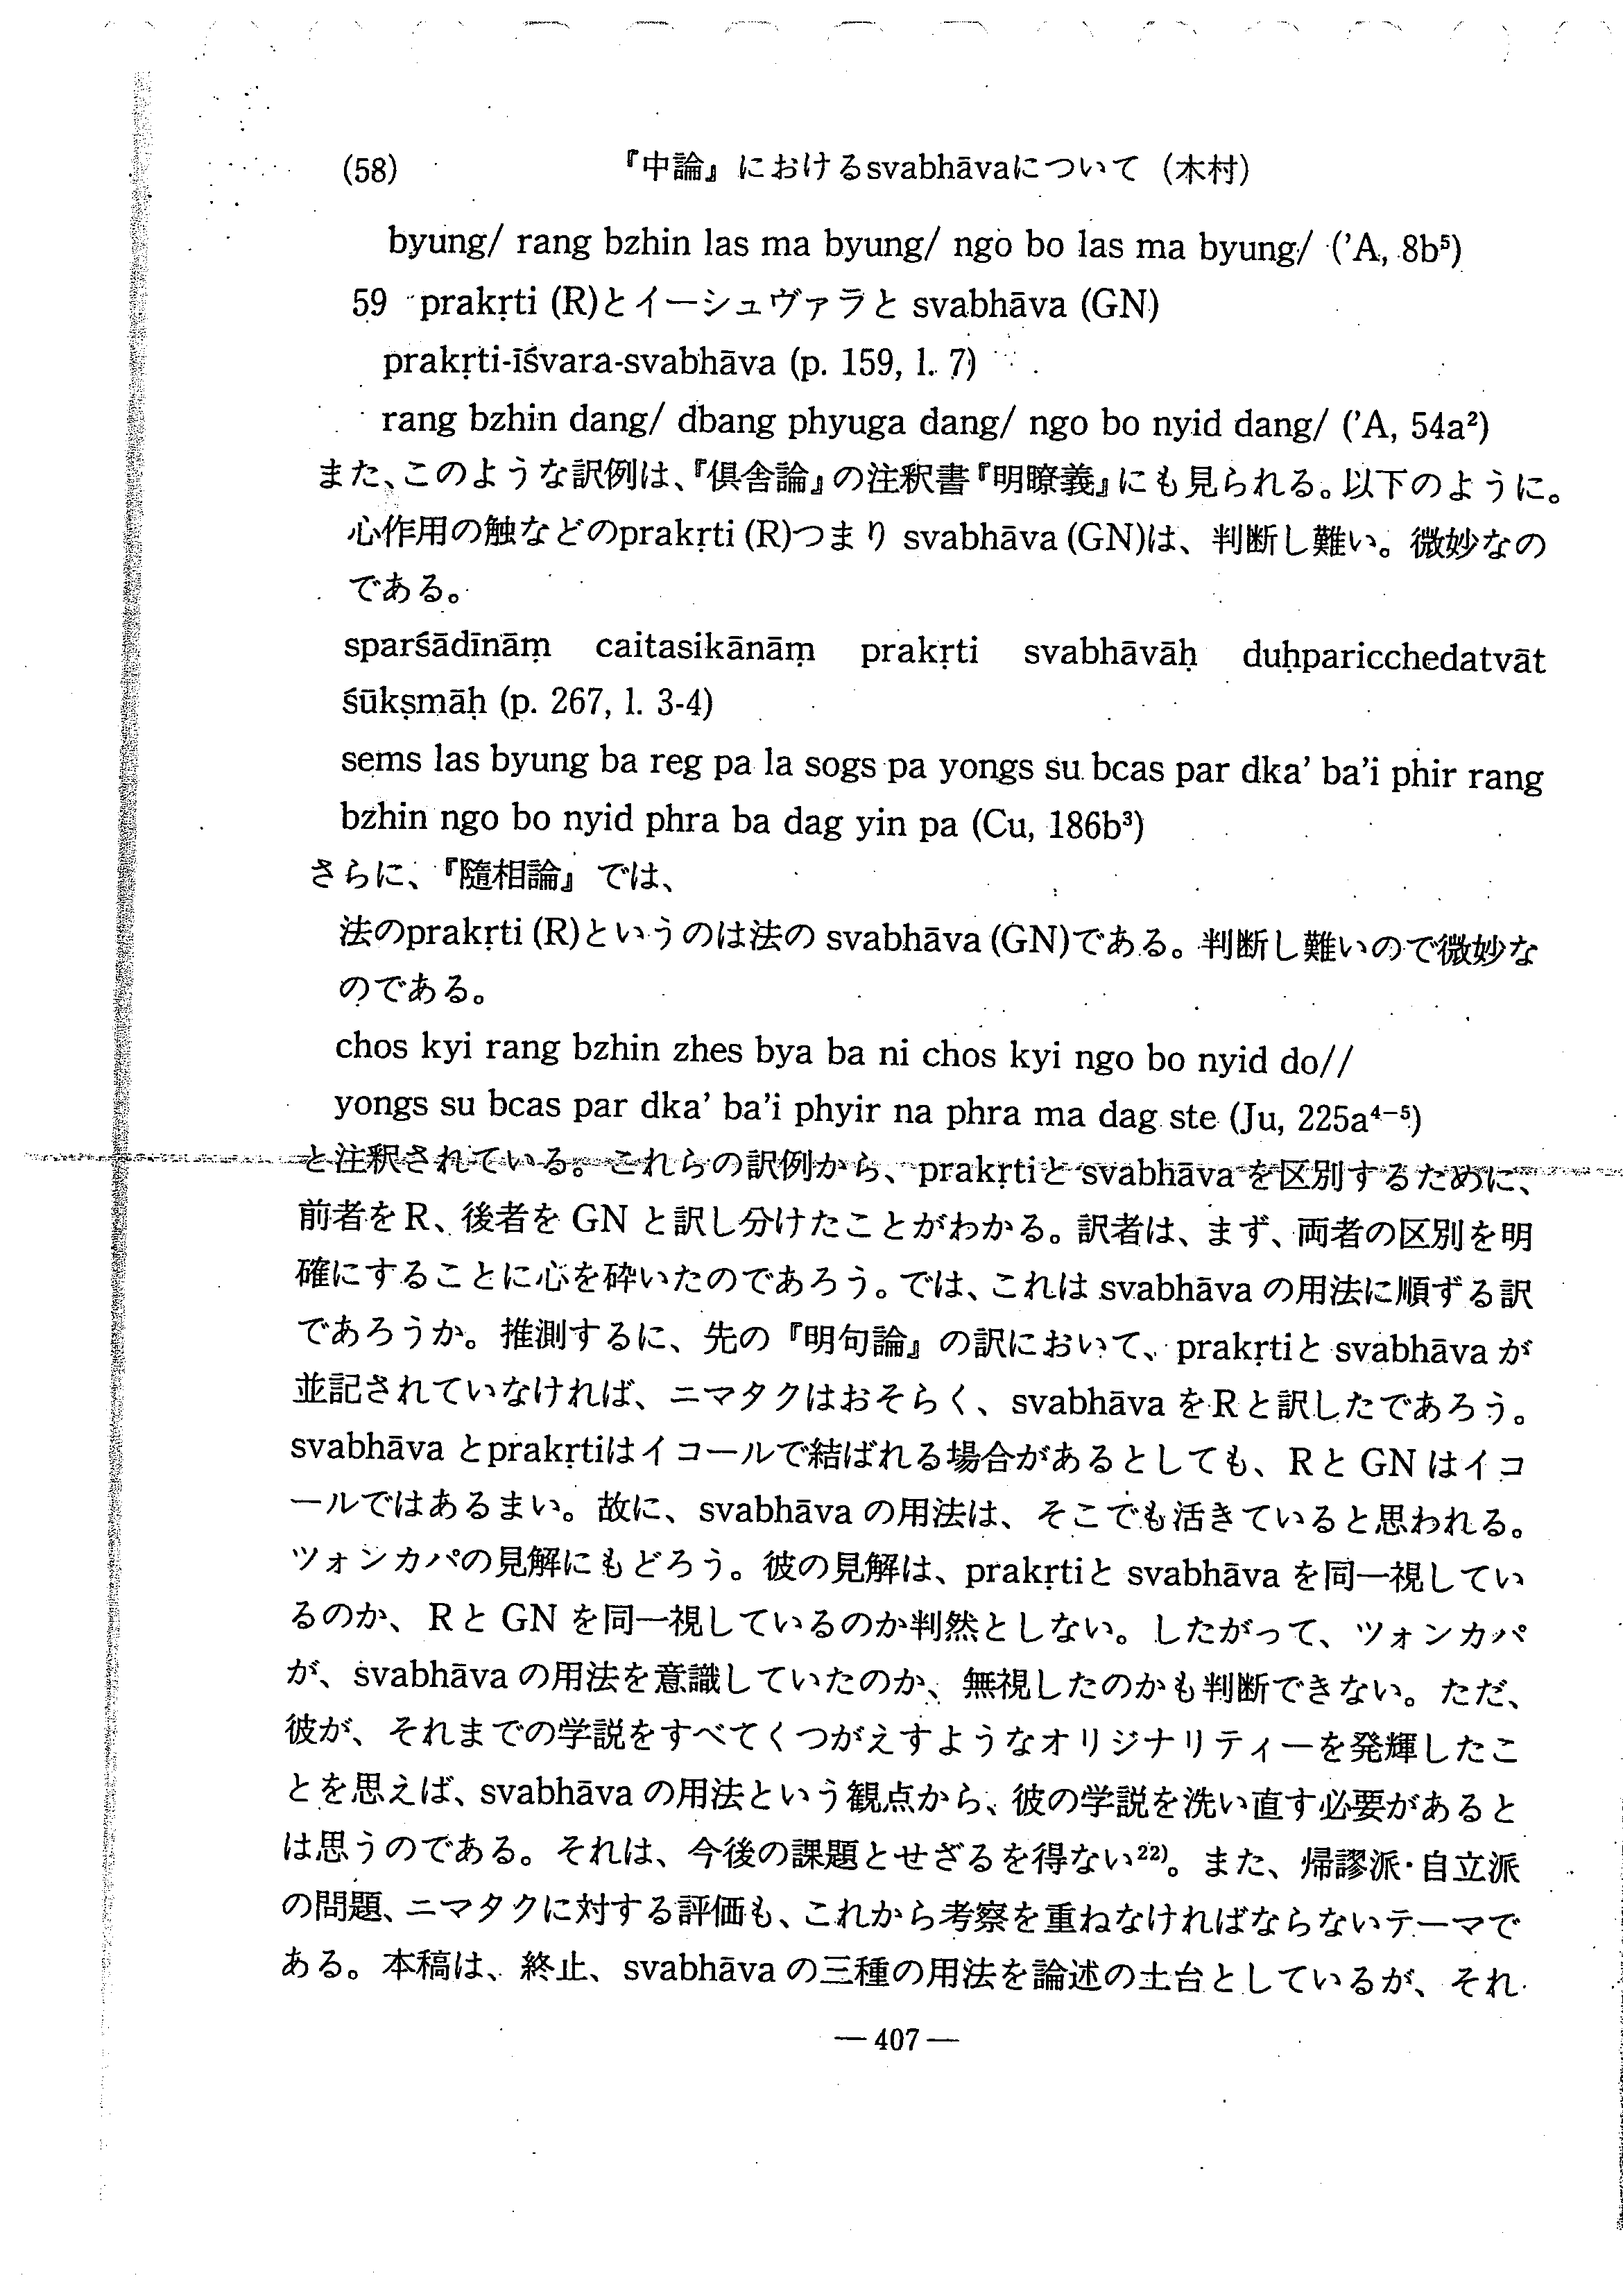 (58) 『中論』におけるsvabhāvaについて（木村）
byung/ rang bzhin las ma byung/ ngo bo las ma byung/ ('A, 8b⁵)
59 prakṛti (R)とイーシュヴァラと svabhāva (GN)
prakṛti-īśvara-svabhāva (p. 159, l. 7)
rang bzhin dang/ dbang phyuga dang/ ngo bo nyid dang/ ('A, 54a²)
また、このような訳例は、『倶舎論』の注釈書『明瞭義』にも見られる。以下のように。
心作用の触などのprakṛti (R)つまり svabhāva (GN)は、判断し難い。微妙なの
である。
sparśādīnāṃ caitasikānāṃ prakṛti svabhāvāḥ duḥparicchedatvāt
śūkṣmāḥ (p. 267, l. 3-4)
sems las byung ba reg pa la sogs pa yongs su bcas par dka' ba'i phir rang
bzhin ngo bo nyid phra ba dag yin pa (Cu, 186b³)
さらに、『隨相論』では、
法のprakṛti (R)というのは法の svabhāva (GN)である。判断し難いので微妙な
のである。
chos kyi rang bzhin zhes bya ba ni chos kyi ngo bo nyid do//
yongs su bcas par dka' ba'i phyir na phra ma dag ste (Ju, 225a⁴⁻⁵)
と注釈されている。これらの訳例から、prakṛtiと svabhāva を区別するために、
前者を R、後者を GN と訳し分けたことがわかる。訳者は、まず、両者の区別を明
確にすることに心を砕いたのであろう。では、これは svabhāva の用法に順ずる訳
であろうか。推測するに、先の『明句論』の訳において、prakṛtiと svabhāva が
並記されていなければ、ニマタクはおそらく、svabhāva を R と訳したであろう。
svabhāva とprakṛtiはイコールで結ばれる場合があるとしても、R と GN はイコ
ールではあるまい。故に、svabhāva の用法は、そこでも活きていると思われる。
ツォンカパの見解にもどろう。彼の見解は、prakṛtiと svabhāva を同一視してい
るのか、R と GN を同一視しているのか判然としない。したがって、ツォンカパ
が、svabhāva の用法を意識していたのか、無視したのかも判断できない。ただ、
彼が、それまでの学説をすべてくつがえすようなオリジナリティーを発揮したこ
とを思えば、svabhāva の用法という観点から、彼の学説を洗い直す必要があると
は思うのである。それは、今後の課題とせざるを得ない²²⁾。また、帰謬派・自立派
の問題、ニマタクに対する評価も、これから考察を重ねなければならないテーマで
ある。本稿は、終止、svabhāva の三種の用法を論述の土台としているが、それ
— 407 —